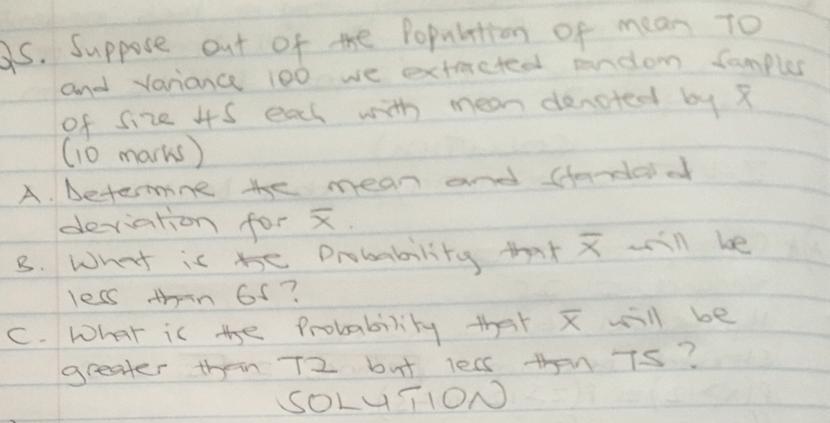 Q5. Suppose out of the Population of mean 70
and variance 100 we extracted random samples
of size 45 each with mean denoted by x̄
(10 marks)
A. Determine the mean and standard
deviation for x̄.
B. What is the Probability that x̄ will be
less than 65?
C. What is the Probability that x̄ will be
greater than 72 but less than 75?
SOLUTION